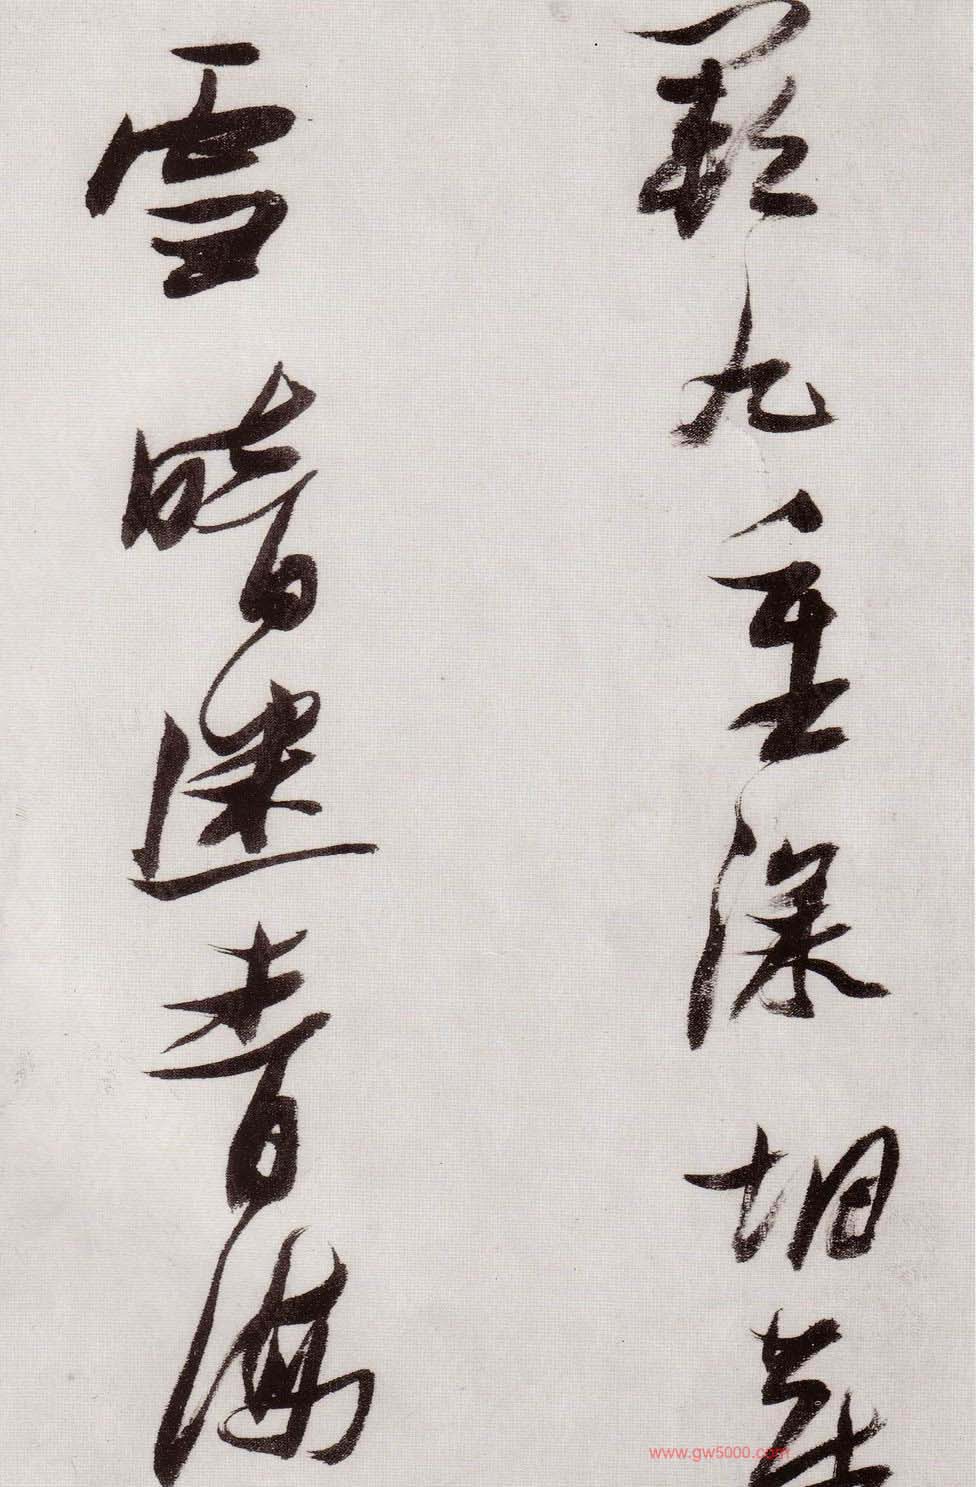 闕九重深胡
雪暗迷青海
www.gw5000.com